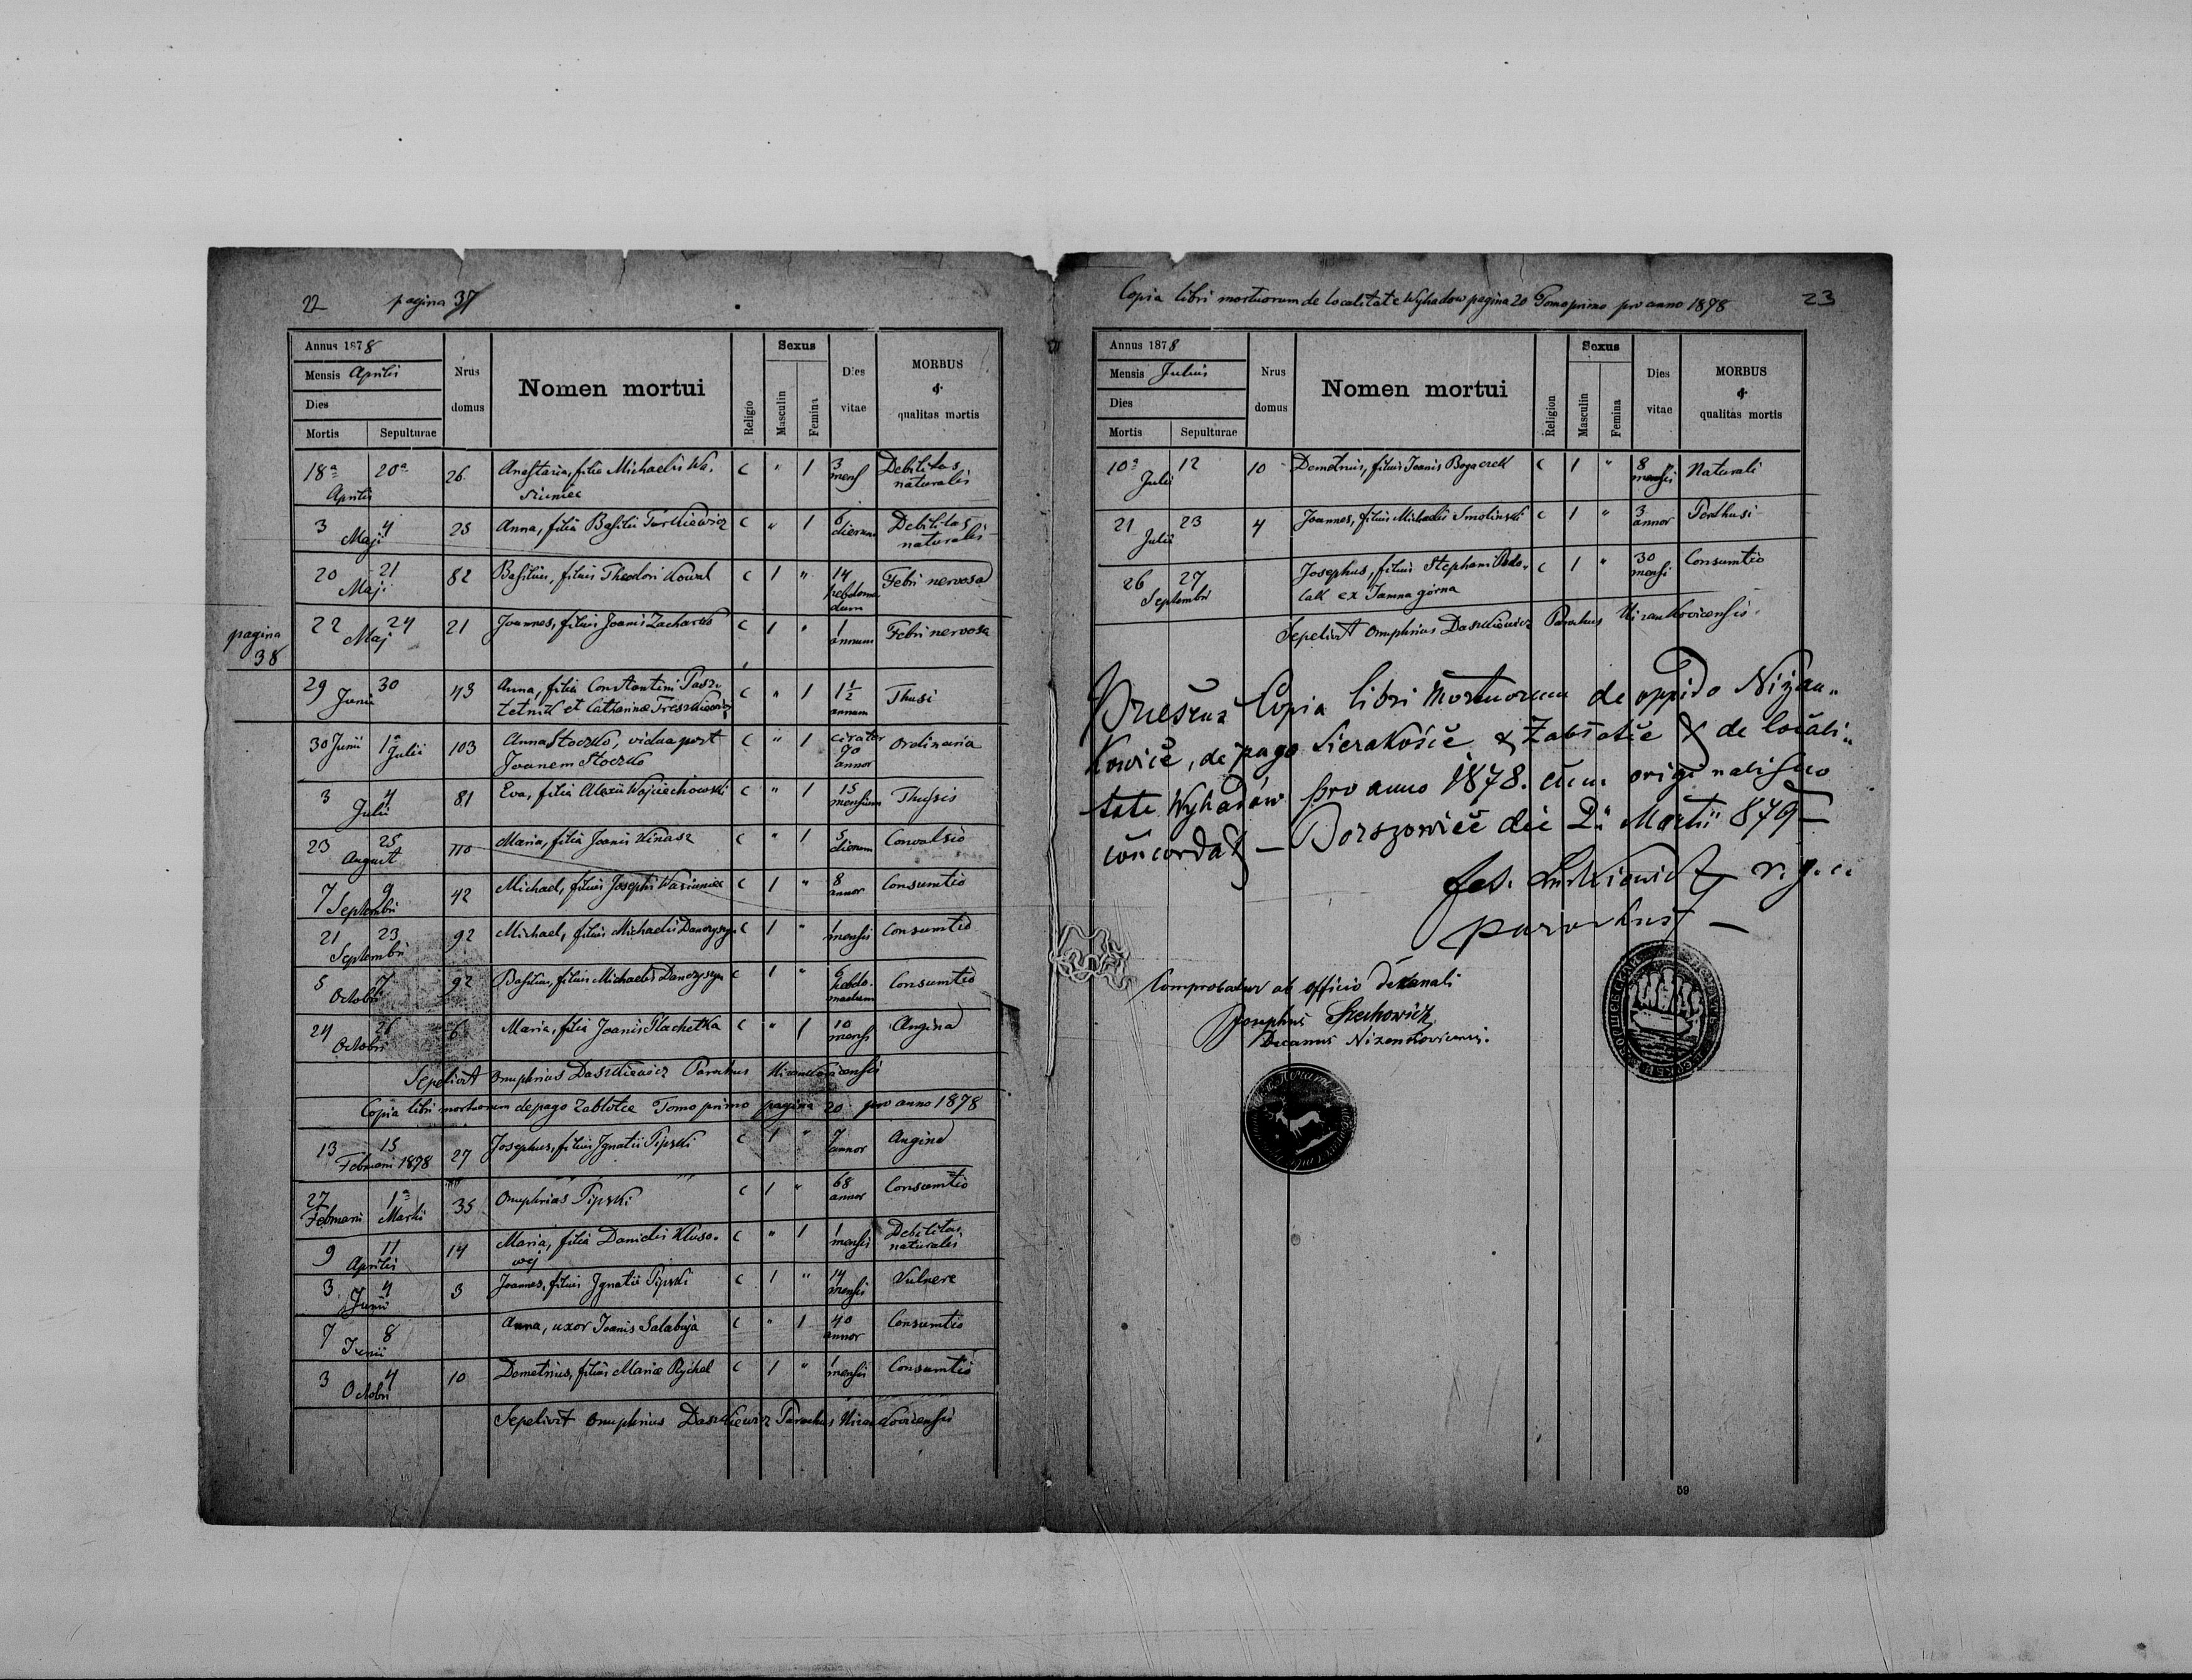 22 pagina 37
Annus 1878
Mensis Aprilis
Dies
Mortis Sepulturae
Nrus domus
Nomen mortui
Religio
Sexus
Masculin Femina
Dies vitae
MORBUS & qualitas mortis
18a 20a Aprilis 26 Anastasia, filia Michaelis Wa- C " 1 3 mens Debilitas naturalis
3 4 Maji 25 Anna, filia Basilii Turkiewicz C " 1 6 dierum Debilitas naturalis
20 21 Maji 82 Basilius, filius Theodori Kowal C 1 " 14 hebdomadum Febri nervosa
22 24 Maj 21 Joannes, filius Joanis Zacharko C 1 " 1 annum Febri nervosa
pagina 38
29 30 Junii 43 Anna, filia Constantini Pasz-
tetnik et Catharinae C " 1 1 1/2 annum Thusi
30 Junii 1a Julii 103 Anna Stoczko, vidua post
Joanem Stoczko C " 1 70 annor Ordinaria
3 4 Julii 81 Eva, filia Alexii Wojciechowski C " 1 15 mensium Thussis
23 25 August 110 Maria, filia Joanis Kinasz C " 1 5 dierum Convulsio
7 9 Septembri 42 Michael, filius Josephi Wasiuniec C 1 " 8 annor Consumtio
21 23 Septembri 92 Michael, filius Michaelis Danczyszyn C 1 " 1 mensis Consumtio
5 7 Octobri 92 Basilius, filius Michaelis Danczyszyn C 1 " hebdomadum Consumtio
24 26 Octobri 6 Maria, filia Joanis Płachetka C " 1 10 mens Angina
Sepelivit Onuphrius Daszkiewicz Parochus Nizankovicensis
Copia libri mortuorum de pago Zabłotce Tomo primo pagina 20 pro anno 1878
13 15 Februarii 1878 27 Josephus, filius Ignatii Pipski C 1 " 7 annor Angina
27 Februarii 1a Martii 35 Onuphrius Pipski C 1 " 68 annor Consumtio
9 11 Aprilis 14 Maria, filia Danielis Kluso-
wej C " 1 1 mensis Debilitas naturalis
3 4 Junii 3 Joannes, filius Ignatii Pipski C 1 " 14 mensis Vulnere
7 8 Junii Anna, uxor Joanis Salabuja C " 1 40 annor Consumtio
3 4 Octobri 10 Demetrius, filius Mariae Rychel C 1 " 1 mensis Consumtio
Sepelivit Onuphrius Daszkiewicz Parochus Nizankovicensis
Copia libri mortuorum de localitate Wyhadow pagina 20 Tomo primo pro anno 1878 23
Annus 1878
Mensis Julius
Dies
Mortis Sepulturae
Nrus domus
Nomen mortui
Religion
Sexus
Masculin Femina
Dies vitae
MORBUS & qualitas mortis
10a 12 Julii 10 Demetrius, filius Joanis Bogaczek C 1 " 8 mensis Naturali
21 23 Julii 4 Joannes, filius Michaelis Smolinski C 1 " 3 annor Perthusi
26 27 Septembri Josephus, filius Stephani Podo-
lak ex Jamna górna C 1 " 30 mensi Consumtio
Sepelivit Onuphrius Daszkiewicz Parochus Nizankovicensis
Praesens Copia libri Mortuorum de oppido Nizan-
kowice, de pago Sierakośce & Zabłotce & de locali-
tate Wyhadów pro anno 1878. cum originali suo
concordat — Borszowice die 2a Martii 879
parochus —
Comprobatur ab officio decanali
Josephus
Decanus Nizankovicensis.
59